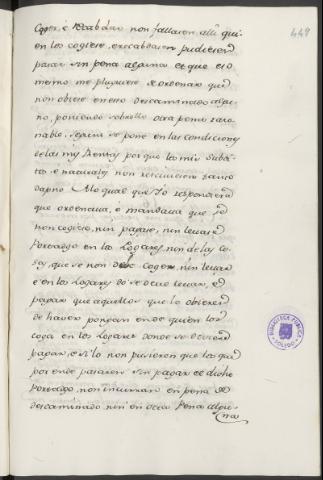 449
Coger, e Recabdar non fallaren alli qui-
en los cogiere, e recabdaren pudieren
pasar sin pena alguna e que eso
mesmo me pluguiere de ordenar que
non obiere en esto descaminado algu-
no, poniendo sobrello otra pena razo-
nable, segun se pone en las condiciones
de las mis Rentas porque los mis subdi-
tos e naturales non rescivieren
dapno. A lo qual que Yo responderia
que ordenava, e mandava que
non cogiere, nin pagare, nin levare
Portadgo en los Logares, nin de las co-
sas, que se non debe Coger, nin levar
e en los Logares do se deve levar, e
pagar que aquellos que lo obieren
de haver pongan ende quien los
coja en los Logares donde se devieren
pagar, e si lo non pusieren que los que
por ende pasaren sin pagar el dicho
Portadgo, non incurran en pena de
descaminado nin en otra Pena algu-
na
BIBLIOTECA PUBLICA
TOLEDO